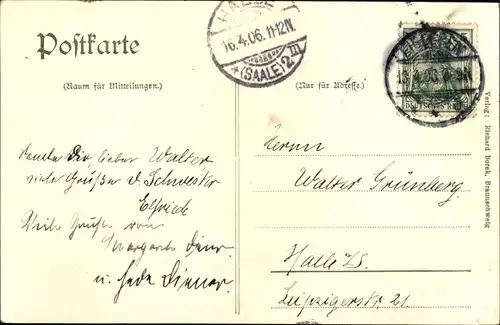 Postkarte
(Raum für Mitteilungen.)
(Nur für Adresse.)
HALLE
16.4.06. 11-12N.
* (SAALE) 2 III
DEUTSCHES REICH
Verlag: Richard Borek, Braunschweig
Sende Dir, lieber Walter
viele Grüße d. Schwester
Elfriede
Viele Grüße von
Margarete
u. Hede Diener.
Herrn
Walter Grünberg.
Halle /S.
Leipzigerstr. 21.